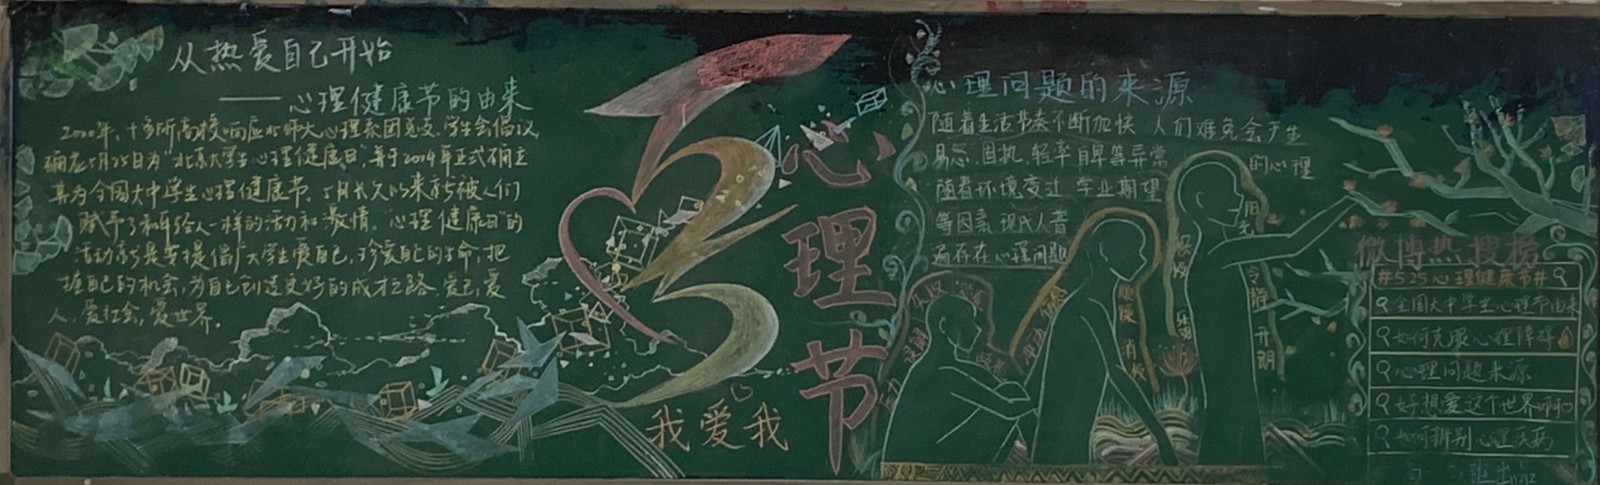 从热爱自己开始
——心理健康节的由来
2000年,十多所高校响应北师大心理系团总支、学生会倡议,
确定5月25日为"北京大学生心理健康日",并于2004年正式确立
其为全国大中学生心理健康节。5月长久以来都被人们
赋予了和年轻人一样的活力和激情。"心理健康日"的
活动就是要提倡大学生爱自己,珍爱自己的生命,把
握自己的机会,为自己创造更好的成才之路。爱己,爱
人,爱社会,爱世界。
525
心理节
我爱我
心理问题的来源
随着生活节奏不断加快 人们难免会产生
易怒、固执、轻率自卑等异常的心理
随着环境变迁 学业期望
等因素 现代人普
遍存在心理问题
积极
乐观
阳光
开朗
健康
微博热搜榜
#525心理健康节#
全国大中学生心理节由来
如何克服心理障碍
心理问题来源
好想爱这个世界啊
如何辨别心理疾病